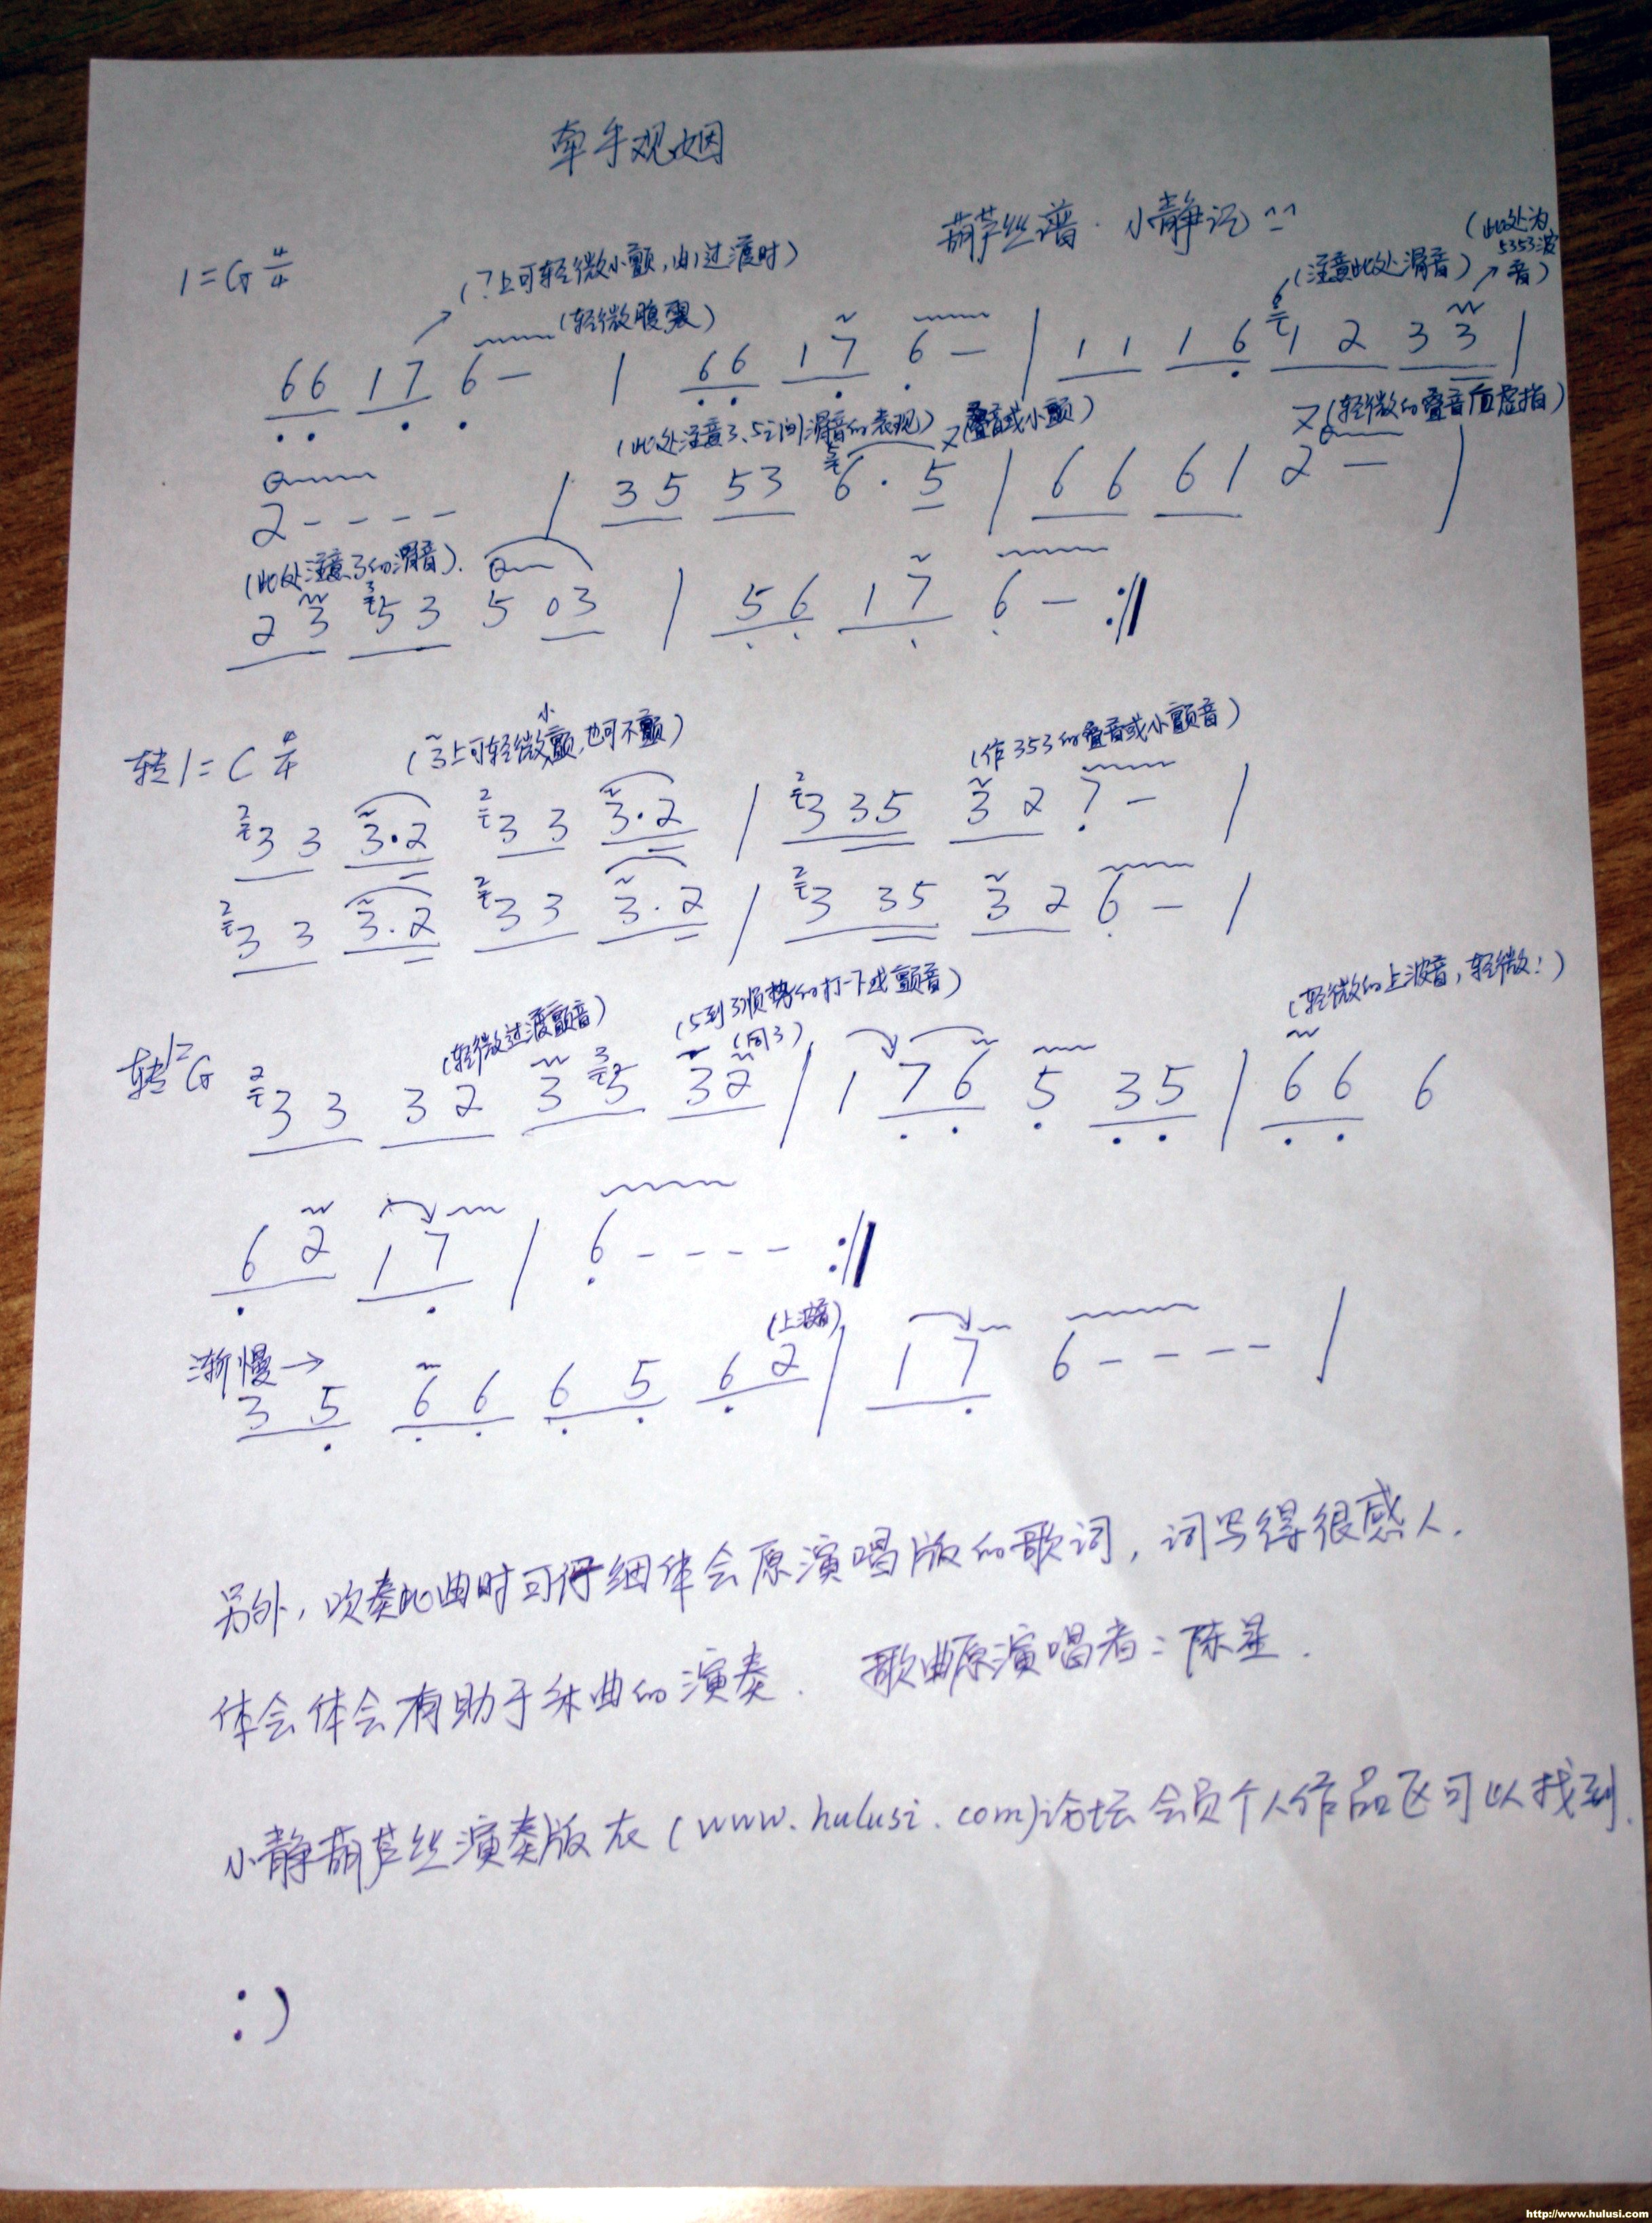 牵手观姻
葫芦丝谱·小静记^^
1=G 4/4
(7上可轻微小颤,由1过渡时)
(轻微腹颤)
(注意此处滑音)
(此处为5353波音)
66 17 6 - | 66 17 6 - | 11 16 12 33 |
(此处注意3、5之间滑音的表现)
(叠音或小颤)
(轻微的叠音后虚指)
2 - - - - | 35 53 6·5 | 66 61 2 - |
(此处注意3的滑音)
23 53 5 03 | 56 17 6 - :||
转1=C 4/4
(3上可轻微小颤,也可不颤)
(作353的叠音或小颤音)
33 3·2 33 3·2 | 3 35 32 7 - |
33 3·2 33 3·2 | 3 35 32 6 - |
转1=G
(轻微过渡颤音)
(5到3顺势的打一下或颤音)
(同3)
(轻微的上波音,轻微!)
33 32 35 32 | 1 76 5 35 | 66 6
62 17 | 6 - - - - :||
渐慢→
(上波音)
35 66 65 62 | 17 6 - - - - |
另外,吹奏此曲时可仔细体会原演唱版的歌词,词写得很感人.
体会体会有助于乐曲的演奏. 歌曲原演唱者:陈星.
小静葫芦丝演奏版在(www.hulusi.com)论坛会员个人作品区可以找到.
:)
http://www.hulusi.com